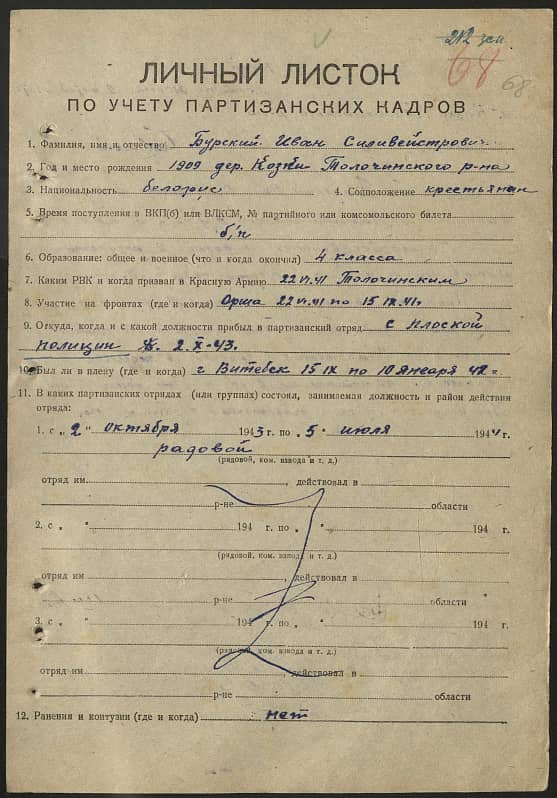 212 зсп
68
68
ЛИЧНЫЙ ЛИСТОК
ПО УЧЕТУ ПАРТИЗАНСКИХ КАДРОВ
1. Фамилия, имя и отчество Бурский Иван Силивейстрович
2. Год и место рождения 1909 дер. Козки Толочинского р-на
3. Национальность белорус 4. Соцположение крестьянин
5. Время поступления в ВКП(б) или ВЛКСМ, № партийного или комсомольского билета
б/п
6. Образование: общее и военное (что и когда окончил) 4 класса
7. Каким РВК и когда призван в Красную Армию 22 VI 41 Толочинским
8. Участие на фронтах (где и когда) Орша 22 VI 41 по 15 IX 41г
9. Откуда, когда и с какой должности прибыл в партизанский отряд с
полиции 2.X-43.
10. Был ли в плену (где и когда) г Витебск 15 IX по 10 января 42 г
11. В каких партизанских отрядах (или группах) состоял, занимаемая должность и район действия
отряда:
1. с „ 2 " октября 1943 г. по „ 5 " июля 1944 г.
радовой
(рядовой, ком. взвода и т. д.)
отряд им. , действовал в
р-не области
2. с „ " 194 г. по „ " 194 г.
(рядовой, ком. взвода и т. д.)
отряд им , действовал в
р-не области
3. с „ " 194 г. по „ " 194 г.
(рядовой, ком. взвода и т. д.)
отряд им , действовал в
р-не области
12. Ранения и контузии (где и когда) нет